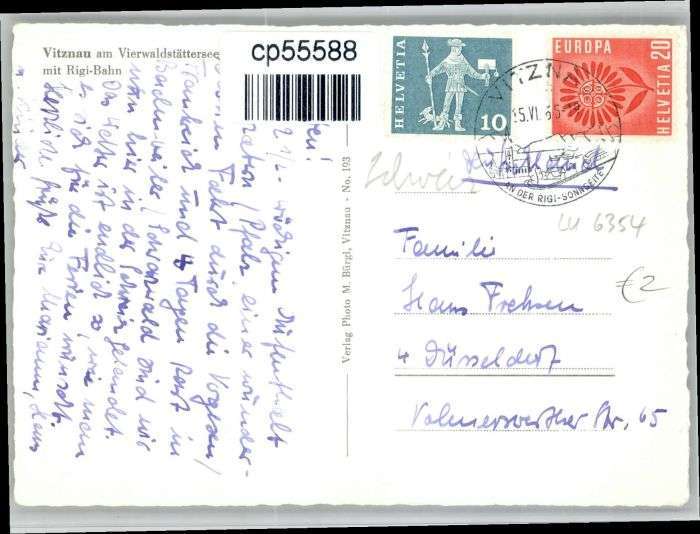 Vitznau am Vierwaldstättersee
mit Rigi-Bahn
cp55588
HELVETIA
10
EUROPA
HELVETIA 20
VITZNAU
15.VI.65
AN DER RIGI-SONNSEITE
Schweiz
LU 6354
€2
Familie
Hans Frehsen
4 Düsseldorf
Volmerswerther Str. 65
Verlag Photo M. Bürgi, Vitznau - No. 193
2 1/2 tägigem Aufenthalt
(Pfalz einer wunder-
Fahrt durch die Vogesen/
Frankreich und 4 Tagen Rast in
Badenweiler/Schwarzwald sind wir
nun hier in der Schweiz gelandet.
Das Wetter ist endlich so, wie man
es sich für die Ferien wünscht.
Herzliche Grüße Eure Marianne, Hans
u. Kinder